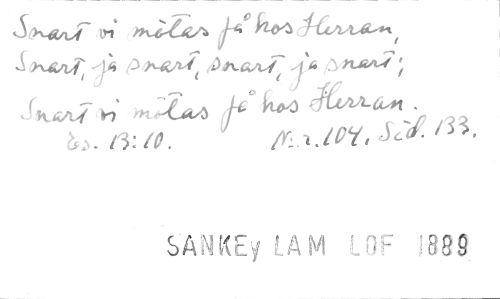 Snart vi mötas få hos Herran,
Snart, ja snart, snart, ja snart;
Snart vi mötas få hos Herran.
Es. 13:10. N:r. 104. Sid. 133.
SANKEy LAM LOF 1889